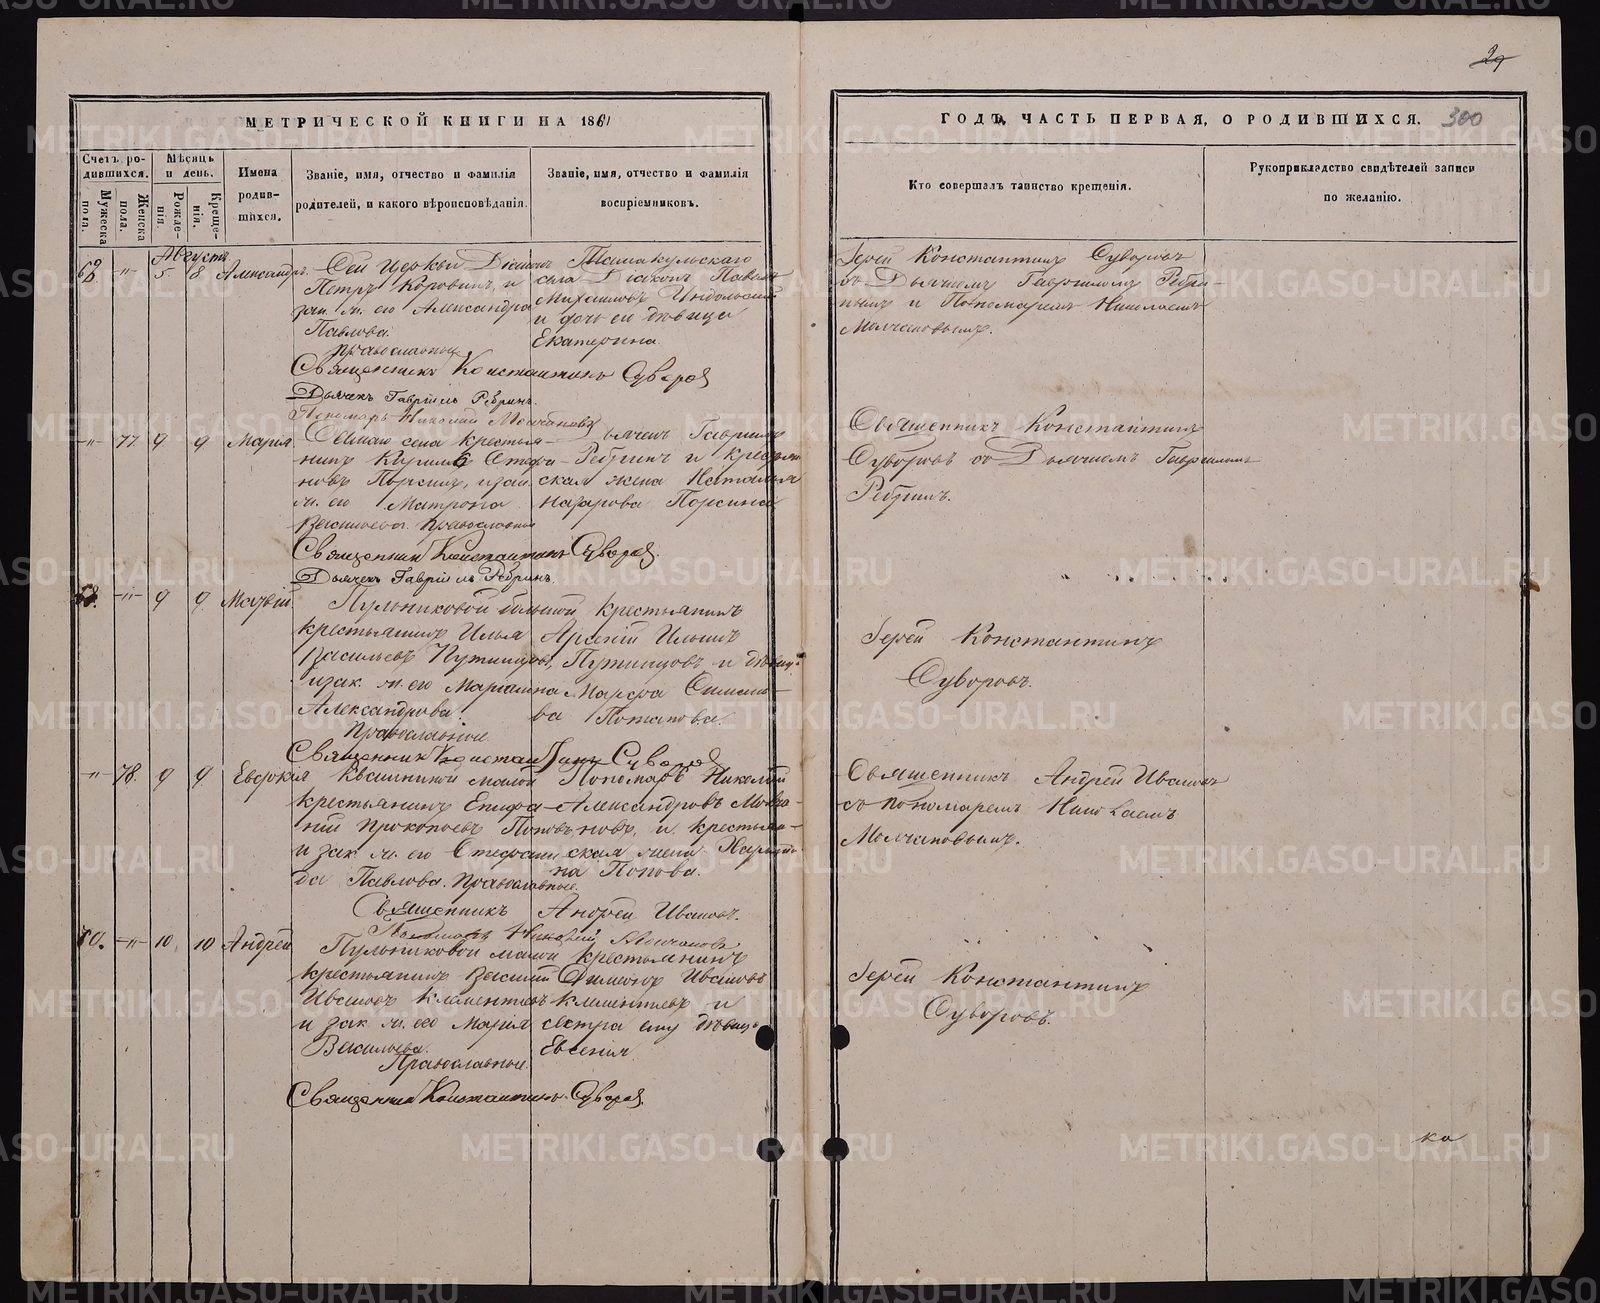 29
МЕТРИЧЕСКОЙ КНИГИ НА 1861
ГОДЪ, ЧАСТЬ ПЕРВАЯ, О РОДИВШИХСЯ. 300
Счетъ ро-
дившихся.
Мужеска
пола.
Женска
пола.
Мѣсяцъ
и день.
Рожде-
нія.
Креще-
нія.
Имена
родив-
шихся.
Званіе, имя, отчество и фамилія
родителей, и какого вѣроисповѣданія.
Званіе, имя, отчество и фамилія
воспріемниковъ.
Кто совершалъ таинство крещенія.
Рукоприкладство свидѣтелей записи
по желанію.
Августъ
5 8 Александръ.
Сей Церкви Діаконъ
Петръ Коровинъ, и
зак. ж. его Александра
Павлова.
Православные
села Діаконъ Павелъ
Михаиловъ
и дочь его дѣвица
Екатерина.
Іерей Константинъ Суворовъ
съ Дьячкомъ Гавріиломъ Ребри-
нымъ и Пономаремъ Николаемъ
Молчановымъ.
Священникъ Константинъ Суворов
Дьячекъ Гавріилъ Ребринъ.
Пономарь Николай Молчановъ
77 9 9 Марія
села крестья-
нинъ Кирилъ Стефа-
новъ и зак.
ж. его Матрона
Васильева. Православные
Дьячекъ Гавріилъ
Ребринъ и крестьян
ская жена Наталья
Назарова
Священникъ Константинъ
Суворовъ со Дьячкомъ Гавріиломъ
Ребринъ.
Священник Константинъ Суворов.
Дьячекъ Гавріилъ Ребринъ.
9 9 Матвѣй
Пульниковой большой
крестьянинъ Илья
Васильевъ Путинцовъ,
и зак. ж. его Маріанна
Александрова.
Православные
крестьянинъ
Арсеній Ильинъ
Путинцовъ и дѣвица
Марфа
ва Потапова.
Іерей Константинъ
Суворовъ.
Священник Константинъ Суворов
78. 9 9 Евфокія
Квашниной малой
крестьянинъ Епифа-
ній Прокопьевъ Поповъ
и зак. ж. его Стефани
да Павлова. Православные.
Пономарь Николай
Александровъ Молча-
новъ, и крестьян-
ская жена
на Попова.
Священникъ Андрей Ивановъ
со пономаремъ Николаемъ
Молчановымъ.
Священникъ Андрей Ивановъ.
Пономарь Николай Молчановъ
10 10 Андрей
Пульниковой малой
крестьянинъ Василій
Ивановъ Клементьевъ
и зак. ж. его Марія
Васильева.
Православные.
крестьянинъ
Симеонъ Ивановъ
Клементьевъ и
сестра ему дѣвица
Евгенія.
Іерей Константинъ
Суворовъ.
Священник Константинъ Суворов.
ка
METRIKI.GASO-URAL.RU